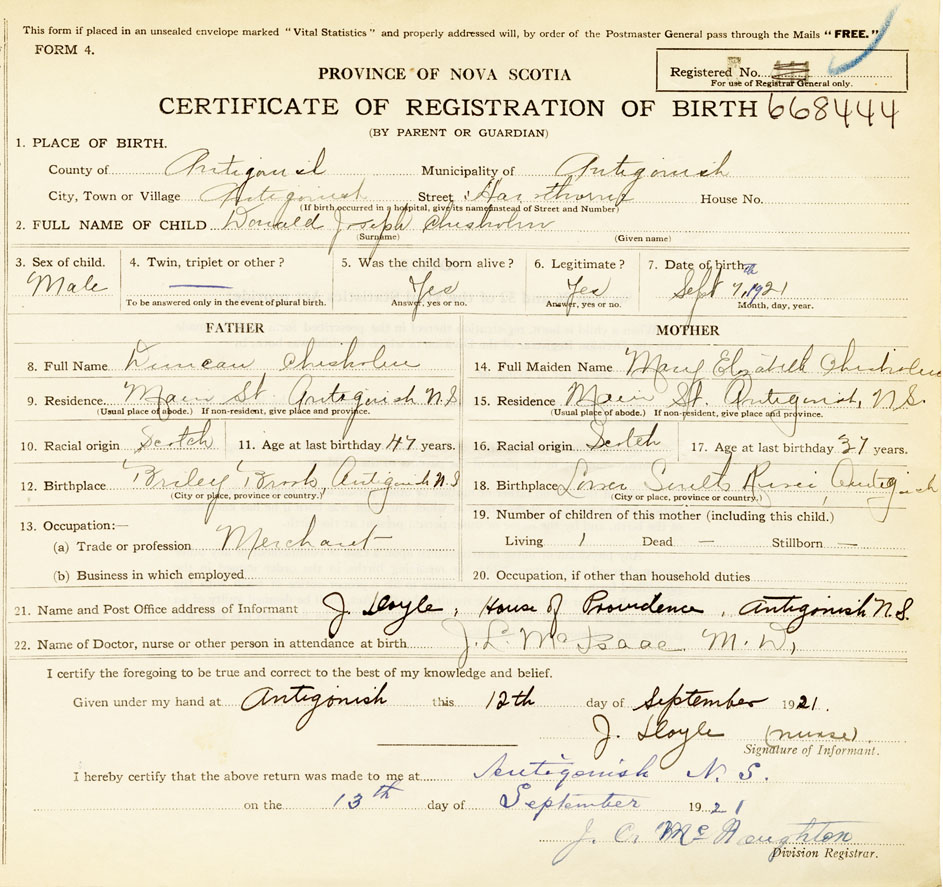 This form if placed in an unsealed envelope marked "Vital Statistics" and properly addressed will, by order of the Postmaster General pass through the Mails "FREE."
FORM 4.
Registered No.
For use of Registrar General only.
PROVINCE OF NOVA SCOTIA
CERTIFICATE OF REGISTRATION OF BIRTH 668444
(BY PARENT OR GUARDIAN)
1. PLACE OF BIRTH.
County of Antigonish Municipality of Antigonish
City, Town or Village Antigonish Street Hawthorne House No.
(If birth occurred in a hospital, give its name instead of Street and Number)
2. FULL NAME OF CHILD Donald Joseph Chisholm
(Surname) (Given name)
3. Sex of child. 4. Twin, triplet or other? 5. Was the child born alive? 6. Legitimate? 7. Date of birth
Male — Yes Yes Sept 7th, 1921
To be answered only in the event of plural birth. Answer, yes or no. Answer, yes or no. Month, day, year.
FATHER MOTHER
8. Full Name Duncan Chisholm 14. Full Maiden Name Mary Elizabeth Chisholm
9. Residence Main St. Antigonish N.S 15. Residence Main St. Antigonish, N.S.
(Usual place of abode.) If non-resident, give place and province. (Usual place of abode.) If non-resident, give place and province.
10. Racial origin Scotch 11. Age at last birthday 47 years. 16. Racial origin Scotch 17. Age at last birthday 37 years.
12. Birthplace Briley Brook, Antigonish N.S 18. Birthplace Lower South River, Antigonish
(City or place, province or country.) (City or place, province or country.)
13. Occupation:— 19. Number of children of this mother (including this child.)
(a) Trade or profession Merchant Living 1 Dead — Stillborn —
(b) Business in which employed 20. Occupation, if other than household duties
21. Name and Post Office address of Informant J. Doyle, House of Providence, Antigonish N.S.
22. Name of Doctor, nurse or other person in attendance at birth J. L. McIsaac M.D.
I certify the foregoing to be true and correct to the best of my knowledge and belief.
Given under my hand at Antigonish this 12th day of September 1921.
J. Doyle (nurse).
Signature of Informant.
I hereby certify that the above return was made to me at Antigonish N. S.
on the 13th day of September 1921
J. C. McNaughton
Division Registrar.